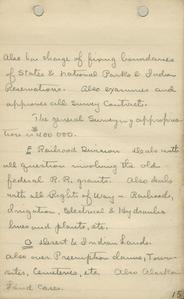 Also has charge of fixing boundaries
of States & National Parks & Indian
Reservations. Also examines and
approves all Survey Contracts.
The general Surveying appropria-
tion is $400 000.
E Railroad Division deals with
all question involving the old
federal R.R. grants. Also deals
with all Rights of Way - Railroads,
Irrigation, Electrical & Hydraulic
lines and plants, etc.
G Desert & Indian Lands.
also over Preemption claims, Town-
sites, Cemeteries, etc. Also Alaskan
Land Cases.
15